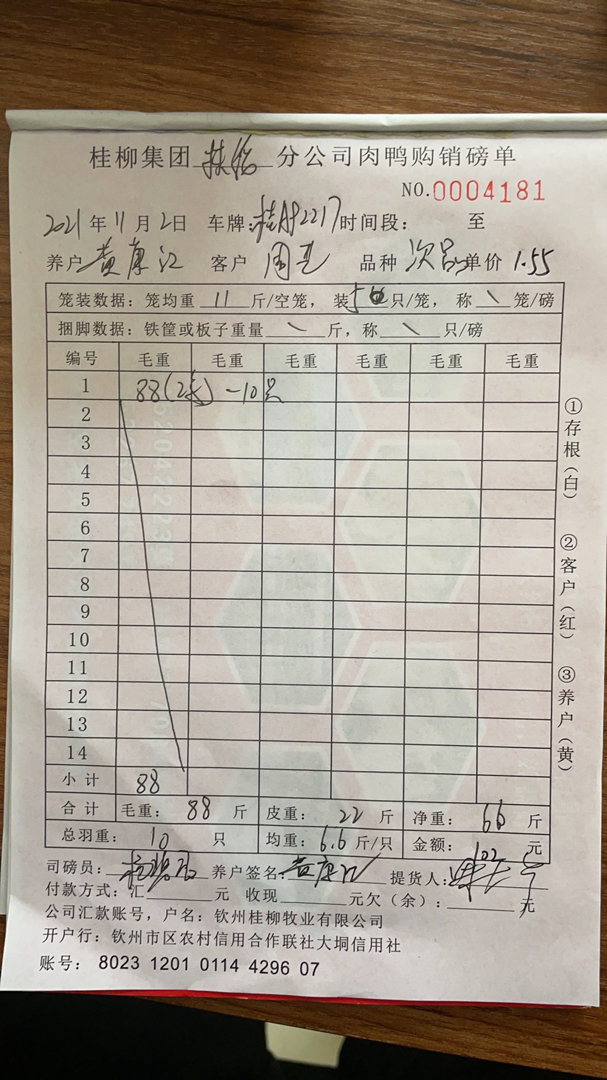 桂柳集团 扶绥 分公司肉鸭购销磅单
NO.0004181
2021年11月2日 车牌:桂AP2217时间段: 至
养户 黄康江 客户 周 品种 次品 单价 1.55
笼装数据:笼均重 11 斤/空笼,装 5 只/笼,称 \ 笼/磅
捆脚数据:铁筐或板子重量 \ 斤,称 \ 只/磅
编号 毛重 毛重 毛重 毛重 毛重 毛重
1 88(2笼)-10只
2
3
4
5
6
7
8
9
10
11
12
13
14
小计 88
合计 毛重: 88 斤 皮重: 22 斤 净重: 66 斤
总羽重: 10 只 均重: 6.6 斤/只 金额: 102 元
司磅员: 养户签名: 黄康江 提货人:
付款方式:汇 元 收现 元欠(余): 元
公司汇款账号,户名:钦州桂柳牧业有限公司
开户行:钦州市区农村信用合作联社大垌信用社
账号: 8023 1201 0114 4296 07
①存根(白)
②客户(红)
③养户(黄)